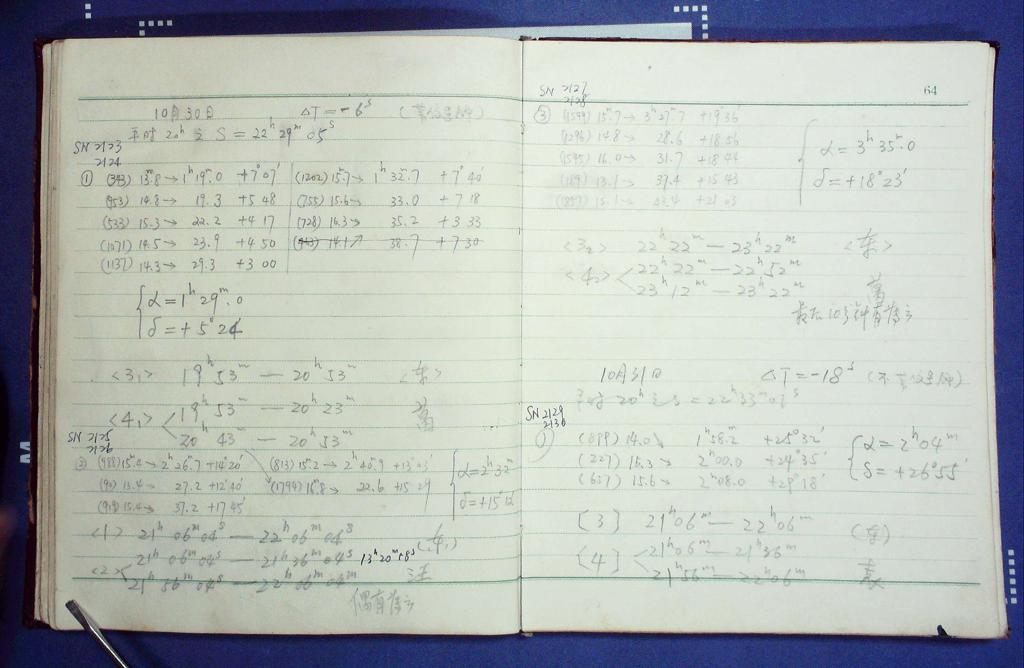 10月30日 ΔT=-6ˢ
平时 20ʰ 之 S=22ʰ29ᵐ05ˢ
SN 2123
2124
① (343) 13.8→ 1ʰ19ᵐ.0 +7°07′ (1202) 15ᵐ.7→ 1ʰ32ᵐ.7 +7°40′
(953) 14.8→ 19.3 +5 48 (755) 15.6→ 33.0 +7 18
(533) 15.3→ 22.2 +4 17 (728) 16.3→ 35.2 +3 33
(1071) 14.5→ 23.9 +4 50 14.1 38.7 +7 30
(1137) 14.3→ 29.3 +3 00
α=1ʰ29ᵐ.0
δ=+5°24′
<3₁> 19ʰ53ᵐ — 20ʰ53ᵐ <东>
<4₁> 19ʰ53ᵐ — 20ʰ23ᵐ 万
20ʰ43ᵐ — 20ʰ53ᵐ
SN 2125
2126
② (988) 15ᵐ.4→ 2ʰ26ᵐ.7 +14°20′ (813) 15.2→ 2ʰ40ᵐ.9 α=2ʰ32ᵐ
13.4→ 27.2 +12°40′ (1794) 16.8→ 22.6 +15 29 δ=+15°12′
15.4→ 37.2 +17 45′
<1> 21ʰ06ᵐ04ˢ — 22ʰ06ᵐ04ˢ
<2> 21ʰ06ᵐ04ˢ — 21ʰ36ᵐ04ˢ 13ʰ20ᵐ58ˢ
21ʰ56ᵐ04ˢ — 22ʰ06ᵐ04ˢ 汪
偶有薄云
64
SN 2127
2128
③ (1599) 15ᵐ.7→ 3ʰ27ᵐ.7 +19°36′
(1296) 14.8→ 28.6 +18 56
(1595) 16.0→ 31.7 +18 44
13.1→ 37.4 +15 43
15.1→ 43.4 +21 03
α=3ʰ35ᵐ.0
δ=+18°23′
<3₂> 22ʰ22ᵐ — 23ʰ22ᵐ <东>
<4₂> 22ʰ22ᵐ — 22ʰ52ᵐ
23ʰ12ᵐ — 23ʰ22ᵐ 万
最后10分钟有薄云
10月31日 ΔT=-18ˢ
平时 20ʰ 之 S=22ʰ33ᵐ01ˢ
SN 2129
2130
① (099) 14.0 1ʰ58ᵐ.2 +25°32′
(227) 15.3→ 2ʰ00.0 +24°35′
(657) 15.6→ 2ʰ08.0 +29°18′
α=2ʰ04ᵐ
δ=+26°55′
[3] 21ʰ06ᵐ — 22ʰ06ᵐ
[4] 21ʰ06ᵐ — 21ʰ36ᵐ
21ʰ56ᵐ — 22ʰ06ᵐ